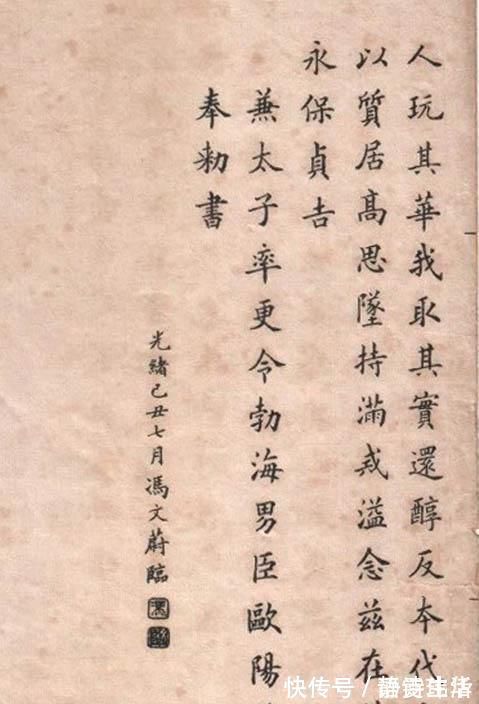 人玩其華我取其實還醇反本代
以質居高思墜持滿戒溢念茲在
永保貞吉
兼太子率更令勃海男臣歐陽
奉勑書
光緒己丑七月馮文蔚臨
快传号／